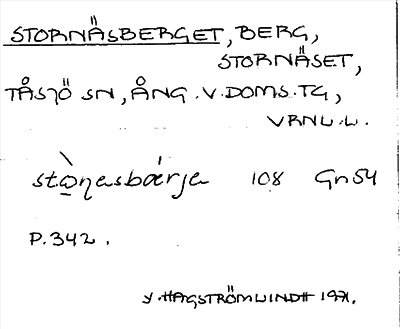 STORNÄSBERGET, BERG,
STORNÄSET,
TÅSJÖ SN, ÅNG. V. DOMS. TG,
VRNL. L.
108 Gn 54
P. 342.
HAGSTRÖM LINDH 1971.